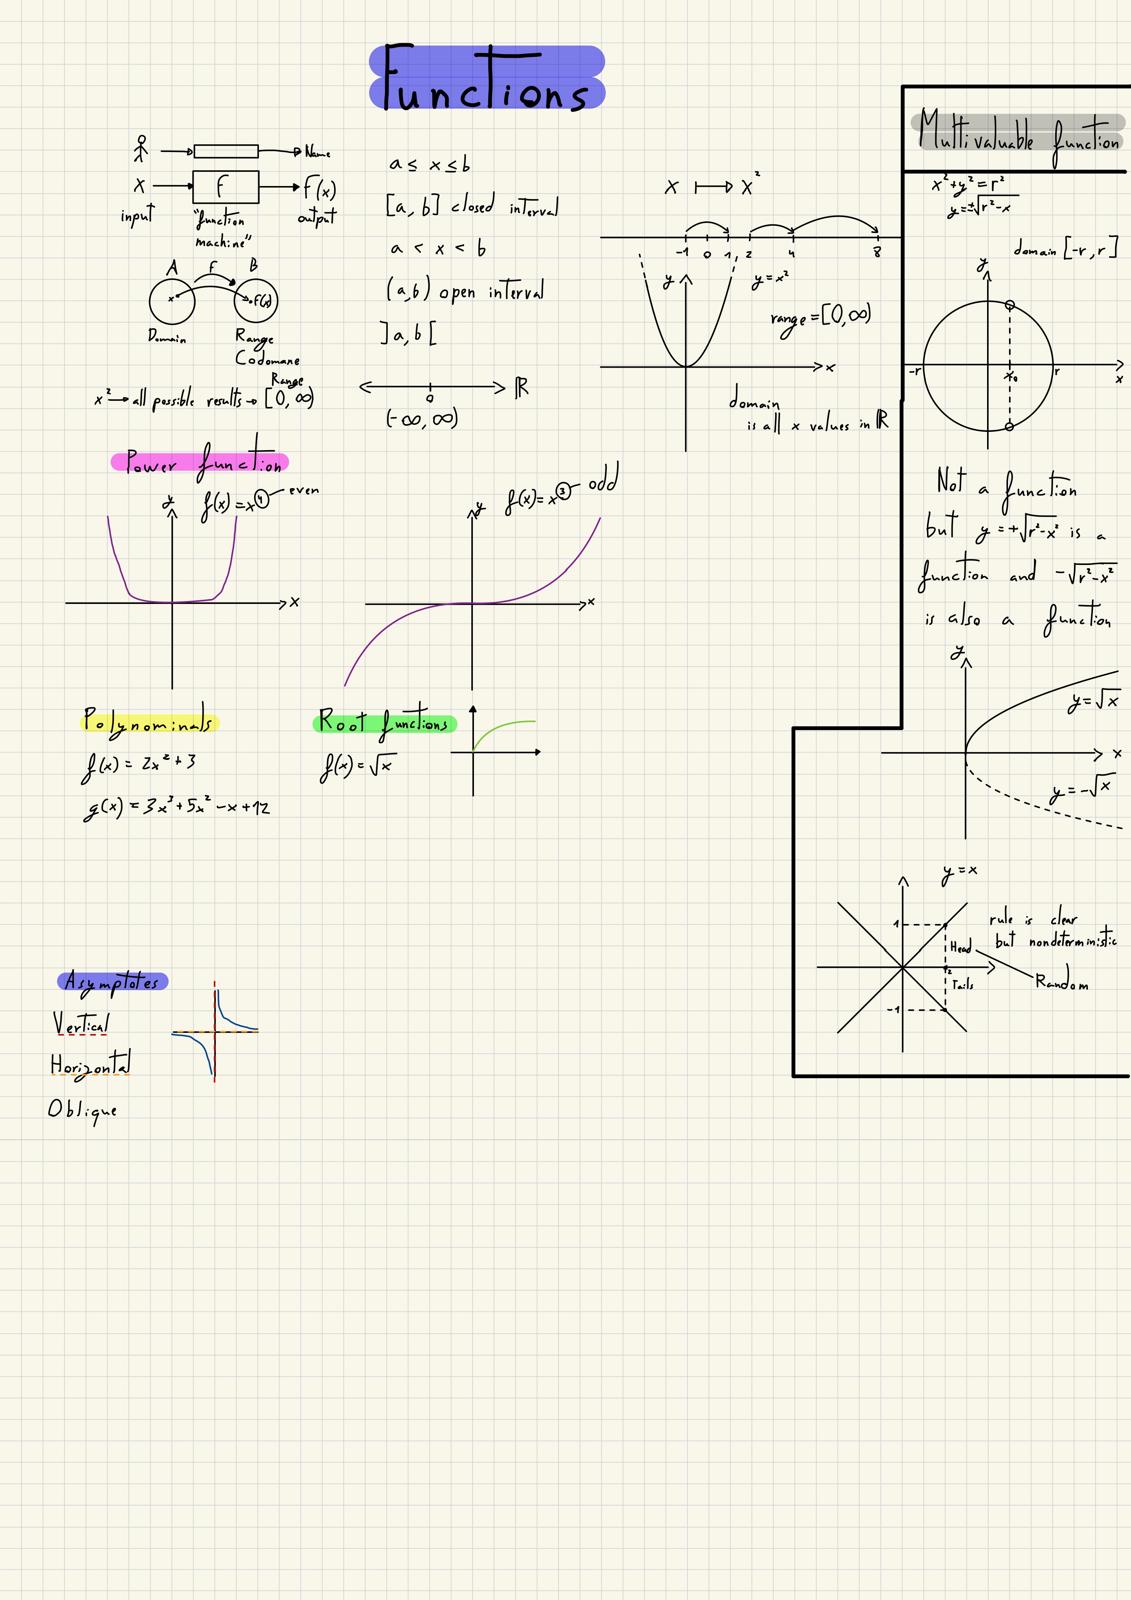 Functions
Name
x
F
F(x)
input
"function
machine"
output
A
F
B
x
F(x)
Domain
Range
Codomane
Range
x² → all possible results → [0, ∞)
a ≤ x ≤ b
[a, b] closed interval
a < x < b
(a,b) open interval
]a,b[
0
ℝ
(-∞, ∞)
x ↦ x²
-1 0 1 2 4 8
y
y = x²
range = [0, ∞)
x
domain
is all x values in ℝ
Multivaluable function
x² + y² = r²
y = ±√r²-x
domain [-r, r]
y
-r
x₀
r
x
Not a function
but y = +√r²-x² is a
function and -√r²-x²
is also a function
y
y = √x
x
y = -√x
y = x
1
rule is clear
but nondeterministic
Head
Tails
Random
-1
Power function
y
f(x) = x④ even
x
y
f(x) = x③ odd
x
Polynominals
f(x) = 2x² + 3
g(x) = 3x³ + 5x² - x + 12
Root functions
f(x) = √x
Asymptotes
Vertical
Horizontal
Oblique